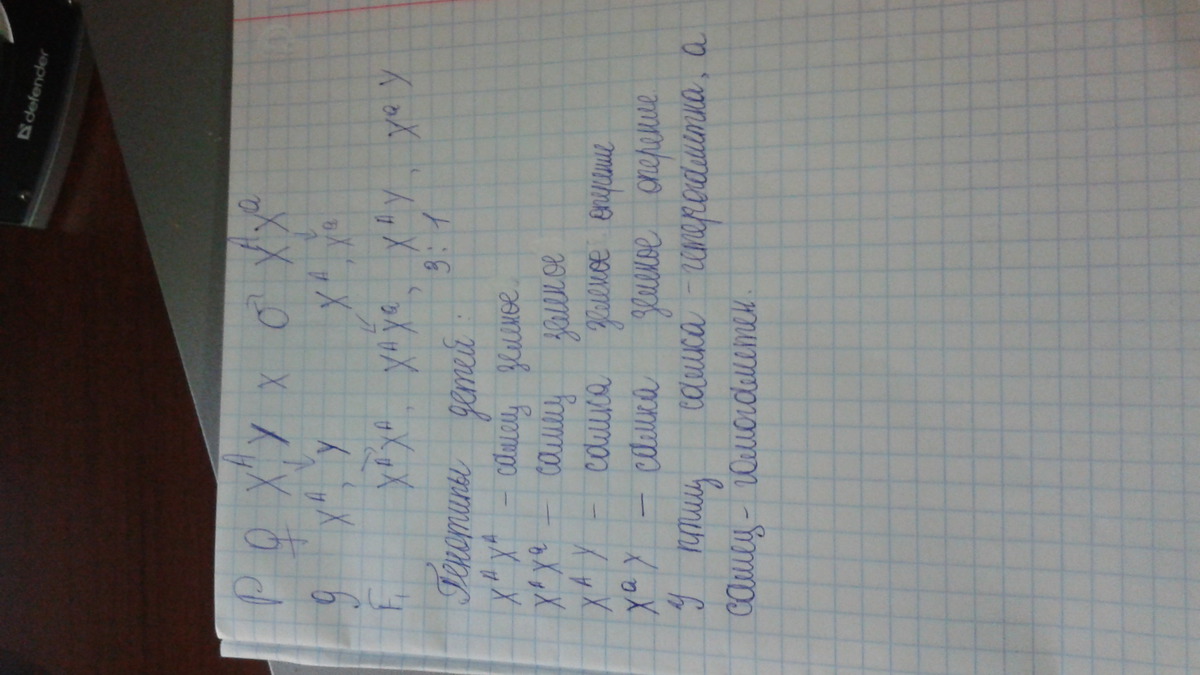 defender
P ♀ XᴬY x ♂ XᴬXᵃ
g Xᴬ, Y Xᴬ, Xᵃ
F₁ XᴬXᴬ, XᴬXᵃ, XᴬY, XᵃY
3:1
Генотипы детей:
XᴬXᴬ – самец зеленое
XᴬXᵃ – самец зеленое
XᴬY – самка зеленое оперение
XᵃY – самка зеленое оперение
У птиц самка – гетерогаметна, а
самец – гомогаметен.